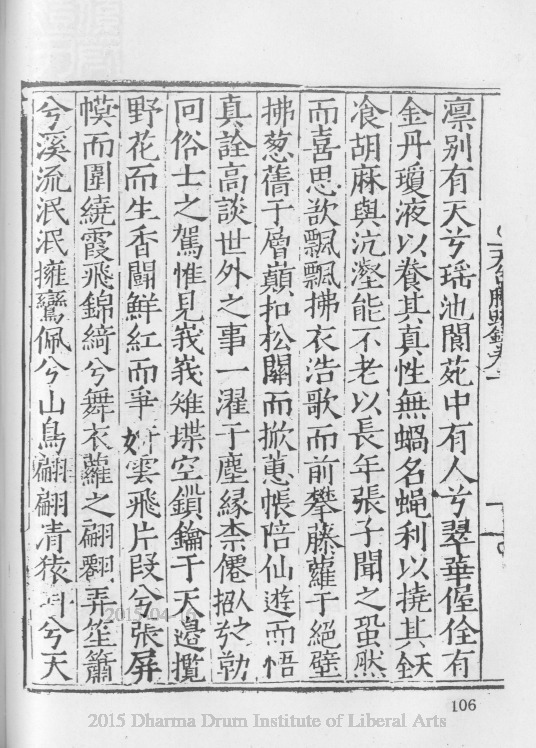 天台勝蹟錄卷一
凛别有天兮瑶池閬苑中有人兮翠華偓佺有
金丹瓊液以養其真性無蝸名蝇利以撓其
飡胡麻與沆瀣能不老以長年張子聞之蛩然
而喜思欲飄飄拂衣浩歌而前攀藤蘿于絕壁
拂葱蒨于層巔扣松關而掀蕙帳陪仙遊而悟
真詮高談世外之事一濯于塵緣柰僊於勒
回俗士之駕惟見峩峩雉堞空鎖鑰于天邉攬
野花而生香鬬鮮紅而爭妍雲飛片段兮張屏
幙而圍繞霞飛錦綺兮舞衣蘿之翩翻弄笙簫
兮溪流泯泯擁鸞佩兮山鳥翩翩清猿兮天
106
2015-04-16
2015 Dharma Drum Institute of Liberal Arts